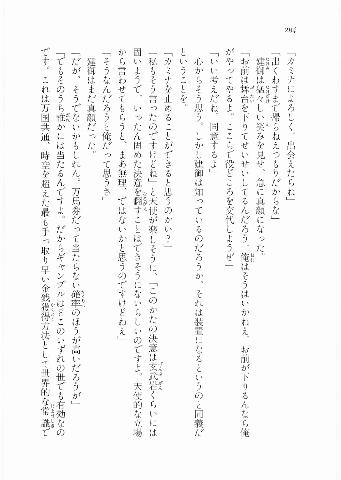 204
「カミナによろしく、出会えたらね」
出くわすまで帰らねえつもりだからな」
建御は猛々しい笑みを見せ、急に真顔になった。
「お前は舞台を下りてせいせいしてるんだろう。俺はそうはいかねえ。お前が下りるんなら俺
がやってやるよ。ここらで役どころを交代しようぜ」
「いい考えだね。同意するよ」
心からそう思う。しかし建御は知っているのだろうか、それは装置になるというのと同義だ
ということを。
「カミナを止めることができると思うのかい？」
「私もそう言ったのですけどね」と天使が楽しそうに、「このかたの決意は玄武岩くらいには
固いようで、いったん固めた決意を翻すことはできそうにないらしいのですと。天使的な立場
から言わせてもらうと、まあ無理、ではないかと思うのですけどねえ」
「そうなんだろうよ。俺だって思うさ」
建御はまだ真顔だった。
「だが、そうでないかもしれん。万馬券だって当たらない確率のほうが高いだろうが」
「でもそのうち誰かには当たるんですよ。だからギャンブルはどこのいずれの世でも有効なの
です。これは万国共通、時空を超えた最も手っ取り早い金銭獲得方法として世界的な常識で